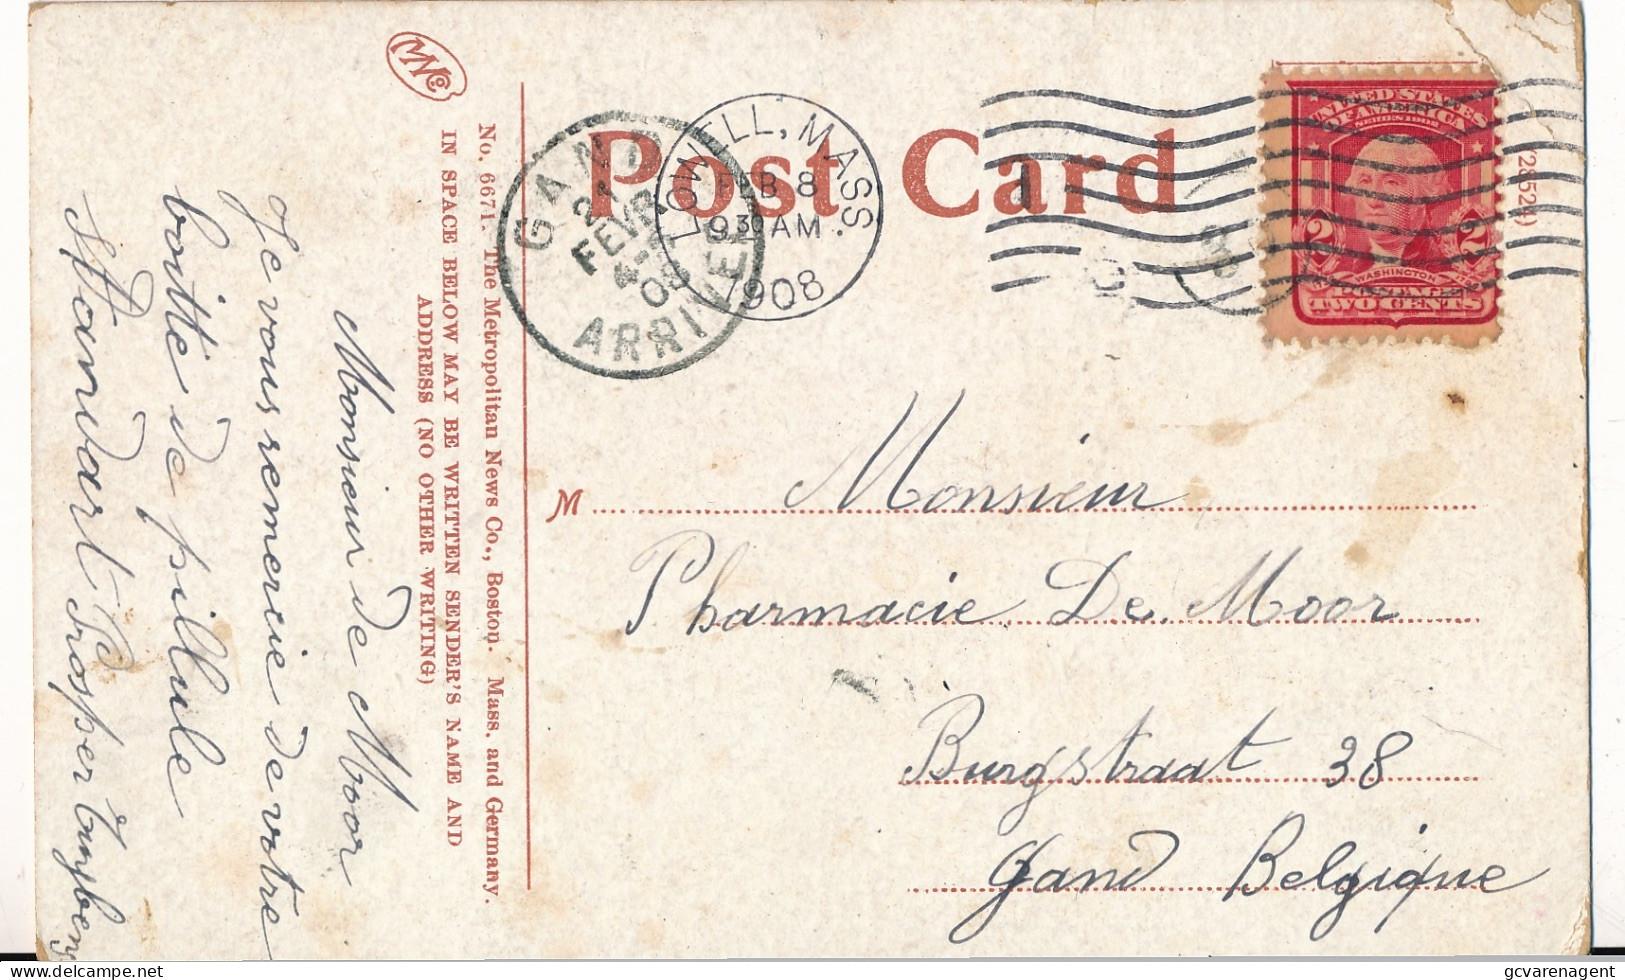 MNCo.
No. 6671. The Metropolitan News Co., Boston. Mass. and Germany.
IN SPACE BELOW MAY BE WRITTEN SENDER'S NAME AND
ADDRESS (NO OTHER WRITING)
Monsieur de Moor
Je vous remercie de votre
boitte de pillule
Standart Prosper
Post Card
GAND
21
FEVR
08
ARRIVEE
LOWELL, MASS.
FEB 8
930 AM
1908
UNITED STATES
OF AMERICA
SERIES 1902
2 2
WASHINGTON
POSTAGE
TWO CENTS
M
Monsieur
Pharmacie De Moor
Burgstraat 38
Gand Belgique
gcvarenagent